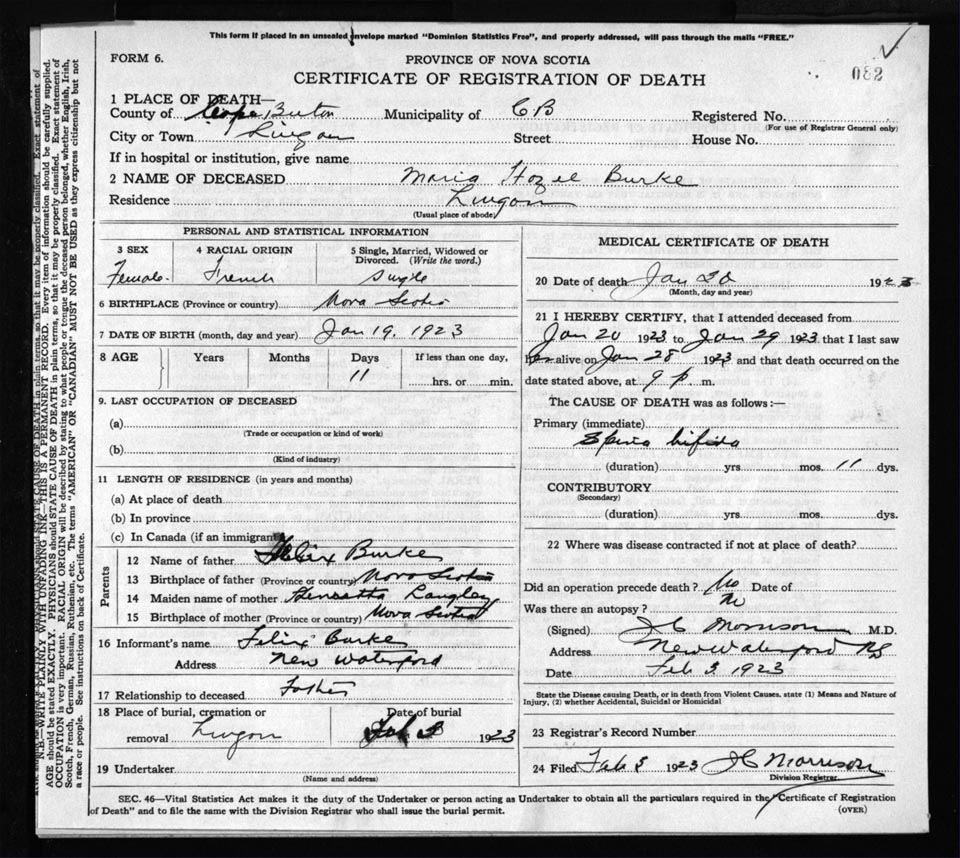 This form if placed in an unsealed envelope marked "Dominion Statistics Free", and properly addressed, will pass through the mails "FREE."
FORM 6.
PROVINCE OF NOVA SCOTIA
CERTIFICATE OF REGISTRATION OF DEATH
082
1 PLACE OF DEATH—
County of Cape Breton Municipality of CB Registered No.
(For use of Registrar General only)
City or Town Lingan Street House No.
If in hospital or institution, give name
2 NAME OF DECEASED Maria Hazel Burke
Residence Lingan
(Usual place of abode)
PERSONAL AND STATISTICAL INFORMATION
3 SEX 4 RACIAL ORIGIN 5 Single, Married, Widowed or Divorced. (Write the word.)
Female. French Single
6 BIRTHPLACE (Province or country) Nova Scotia
7 DATE OF BIRTH (month, day and year) Jan 19. 1923
8 AGE Years Months Days If less than one day,
11 hrs. or min.
9. LAST OCCUPATION OF DECEASED
(a)
(Trade or occupation or kind of work)
(b)
(Kind of industry)
11 LENGTH OF RESIDENCE (in years and months)
(a) At place of death
(b) In province
(c) In Canada (if an immigrant)
Parents
12 Name of father Felix Burke
13 Birthplace of father (Province or country) Nova Scotia
14 Maiden name of mother Henrietta Langley
15 Birthplace of mother (Province or country) Nova Scotia
16 Informant's name Felix Burke
Address New Waterford
17 Relationship to deceased Father
18 Place of burial, cremation or Date of burial
removal Lingan Feb 1923
19 Undertaker
(Name and address)
MEDICAL CERTIFICATE OF DEATH
20 Date of death Jan 192
(Month, day and year)
21 I HEREBY CERTIFY, that I attended deceased from
Jan 20 1923 to Jan 29 1923 that I last saw
alive on Jan 28 1923 and that death occurred on the
date stated above, at 9 p m.
The CAUSE OF DEATH was as follows:—
Primary (immediate)
Spina bifida
(duration) yrs. mos. 11 dys.
CONTRIBUTORY
(Secondary)
(duration) yrs. mos. dys.
22 Where was disease contracted if not at place of death?
Did an operation precede death? No Date of
Was there an autopsy? No
(Signed) JC Morrison M.D.
Address New Waterford NS
Date Feb 3 1923
State the Disease causing Death, or in death from Violent Causes, state (1) Means and Nature of
Injury, (2) whether Accidental, Suicidal or Homicidal
23 Registrar's Record Number
24 Filed Feb 3 1923 JC Morrison
Division Registrar
SEC. 46—Vital Statistics Act makes it the duty of the Undertaker or person acting as Undertaker to obtain all the particulars required in the "Certificate of Registration
of Death" and to file the same with the Division Registrar who shall issue the burial permit.
(OVER)
N.B.—WRITE PLAINLY WITH UNFADING INK—THIS IS A PERMANENT RECORD. Every item of information should be carefully supplied.
AGE should be stated EXACTLY. PHYSICIANS should STATE CAUSE OF DEATH in plain terms, so that it may be properly classified. Exact statement of
OCCUPATION is very important. RACIAL ORIGIN will be described by stating to what people or tongue the deceased person belonged, whether English, Irish,
Scotch, French, German, Russian, Ruthenian, etc. The terms "AMERICAN" OR "CANADIAN" MUST NOT BE USED as they express citizenship but not
a race or people. See instructions on back of Certificate.